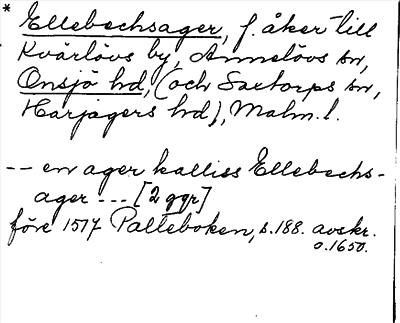 * Ellebechsager, f. åker till
Kvärlövs by, Annelövs sn,
Onsjö hd, (och Saxtorps sn,
Harjagers hd), Malm. l.
-- en ager kalliss Ellebechs-
ager --- [2 ggr]
före 1517 Palteboken, s. 188. avskr.
o. 1650.